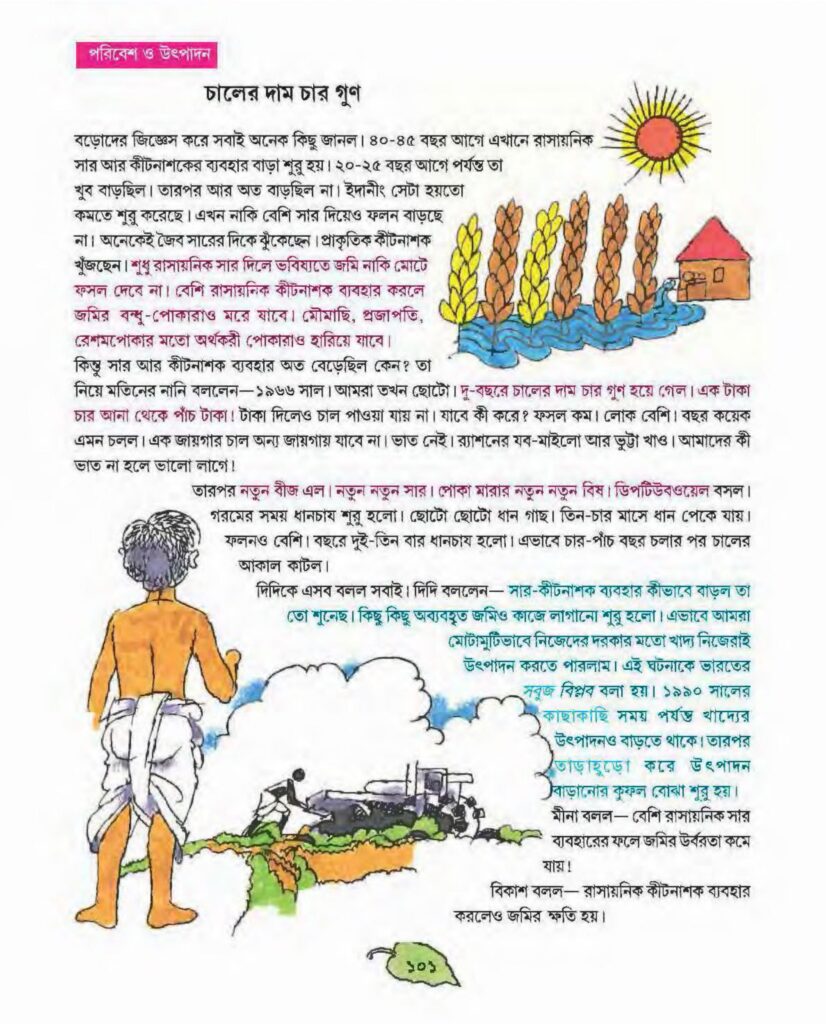 পরিবেশ ও উৎপাদন
চালের দাম চার গুণ
বড়োদের জিজ্ঞেস করে সবাই অনেক কিছু জানল। ৪০-৪৫ বছর আগে এখানে রাসায়নিক
সার আর কীটনাশকের ব্যবহার বাড়া শুরু হয়। ২০-২৫ বছর আগে পর্যন্ত তা
খুব বাড়ছিল। তারপর আর অত বাড়ছিল না। ইদানীং সেটা হয়তো
কমতে শুরু করেছে। এখন নাকি বেশি সার দিয়েও ফলন বাড়ছে
না। অনেকেই জৈব সারের দিকে ঝুঁকেছেন। প্রাকৃতিক কীটনাশক
খুঁজছেন। শুধু রাসায়নিক সার দিলে ভবিষ্যতে জমি নাকি মোটে
ফসল দেবে না। বেশি রাসায়নিক কীটনাশক ব্যবহার করলে
জমির বন্ধু-পোকারাও মরে যাবে। মৌমাছি, প্রজাপতি,
রেশমপোকার মতো অর্থকরী পোকারাও হারিয়ে যাবে।
কিন্তু সার আর কীটনাশক ব্যবহার অত বেড়েছিল কেন? তা
নিয়ে মতিনের নানি বললেন—১৯৬৬ সাল। আমরা তখন ছোটো। দু-বছরে চালের দাম চার গুণ হয়ে গেল। এক টাকা
চার আনা থেকে পাঁচ টাকা! টাকা দিলেও চাল পাওয়া যায় না। যাবে কী করে? ফসল কম। লোক বেশি। বছর কয়েক
এমন চলল। এক জায়গার চাল অন্য জায়গায় যাবে না। ভাত নেই। র‍্যাশনের যব-মাইলো আর ভুট্টা খাও। আমাদের কী
ভাত না হলে ভালো লাগে!
তারপর নতুন বীজ এল। নতুন নতুন সার। পোকা মারার নতুন নতুন বিষ। ডিপটিউবওয়েল বসল।
গরমের সময় ধানচাষ শুরু হলো। ছোটো ছোটো ধান গাছ। তিন-চার মাসে ধান পেকে যায়।
ফলনও বেশি। বছরে দুই-তিন বার ধানচাষ হলো। এভাবে চার-পাঁচ বছর চলার পর চালের
আকাল কাটল।
দিদিকে এসব বলল সবাই। দিদি বললেন— সার-কীটনাশক ব্যবহার কীভাবে বাড়ল তা
তো শুনেছ। কিছু কিছু অব্যবহৃত জমিও কাজে লাগানো শুরু হলো। এভাবে আমরা
মোটামুটিভাবে নিজেদের দরকার মতো খাদ্য নিজেরাই
উৎপাদন করতে পারলাম। এই ঘটনাকে ভারতের
সবুজ বিপ্লব বলা হয়। ১৯৯০ সালের
কাছাকাছি সময় পর্যন্ত খাদ্যের
উৎপাদনও বাড়তে থাকে। তারপর
তাড়াহুড়ো করে উৎপাদন
বাড়ানোর কুফল বোঝা শুরু হয়।
মীনা বলল— বেশি রাসায়নিক সার
ব্যবহারের ফলে জমির উর্বরতা কমে
যায়!
বিকাশ বলল— রাসায়নিক কীটনাশক ব্যবহার
করলেও জমির ক্ষতি হয়।
১০১